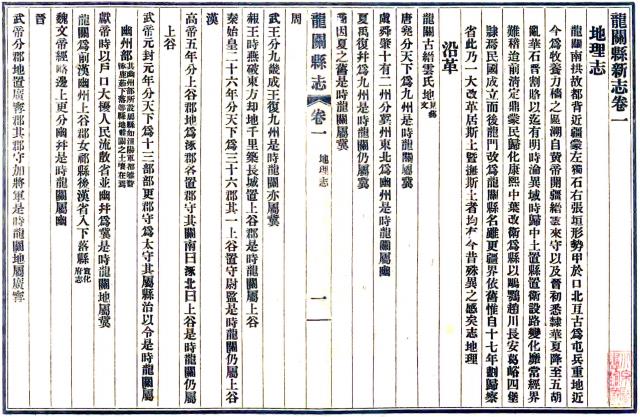 龍關縣新志卷一
地理志
龍關南拱故都背近疆蒙左獨石右張垣形勢甲於口北亘古為屯兵重地近
今為牧養力穡之區溯自黃帝開疆縉雲來守以及晉初悉隸華夏降至五胡
亂華石晉割賂以迄有明時淪異域時歸中土置縣置衛設路變化靡常經界
難稽迨前清定鼎蒙民歸化康熙中葉改衛為縣以鵰鶚趙川長安葛峪四堡
隸焉民國成立而後龍門改為龍關縣名雖更疆界依舊惟自十七年劃歸察
省此乃一大改革居斯土暨撫斯土者均有今昔殊異之感矣志地理
沿革
龍關古縉雲氏地
唐堯分天下為九州是時龍關屬冀
虞舜肇十有二州分冀州東北為幽州是時龍關屬幽
夏禹復并為九州是時龍關仍屬冀
因夏之舊是時龍關屬冀
龍關縣志 卷一 地理志 一
周
武王分九畿成王復九州是時龍關亦屬冀
赧王時燕破東方却地千里築長城置上谷郡是時龍關屬上谷
秦始皇二十六年分天下為三十六郡其一上谷置守尉監是時龍關仍屬上谷
漢
高帝五年分上谷郡地為涿郡各置郡守其關南曰涿北曰上谷是時龍關仍屬
上谷
武帝元封元年分天下為十三部都更郡守為太守其屬縣治以令是時龍關屬
幽州部
獻帝時以戶口大擾人民流散省並幽并為冀是時龍關地屬冀
龍關為前漢幽州上谷郡女祁縣後漢省入下落縣 宣化府志
魏文帝經略邊上更分幽并是時龍關屬幽
晉
武帝分郡地置廣甯郡其郡守加將軍是時龍關地屬廣甯